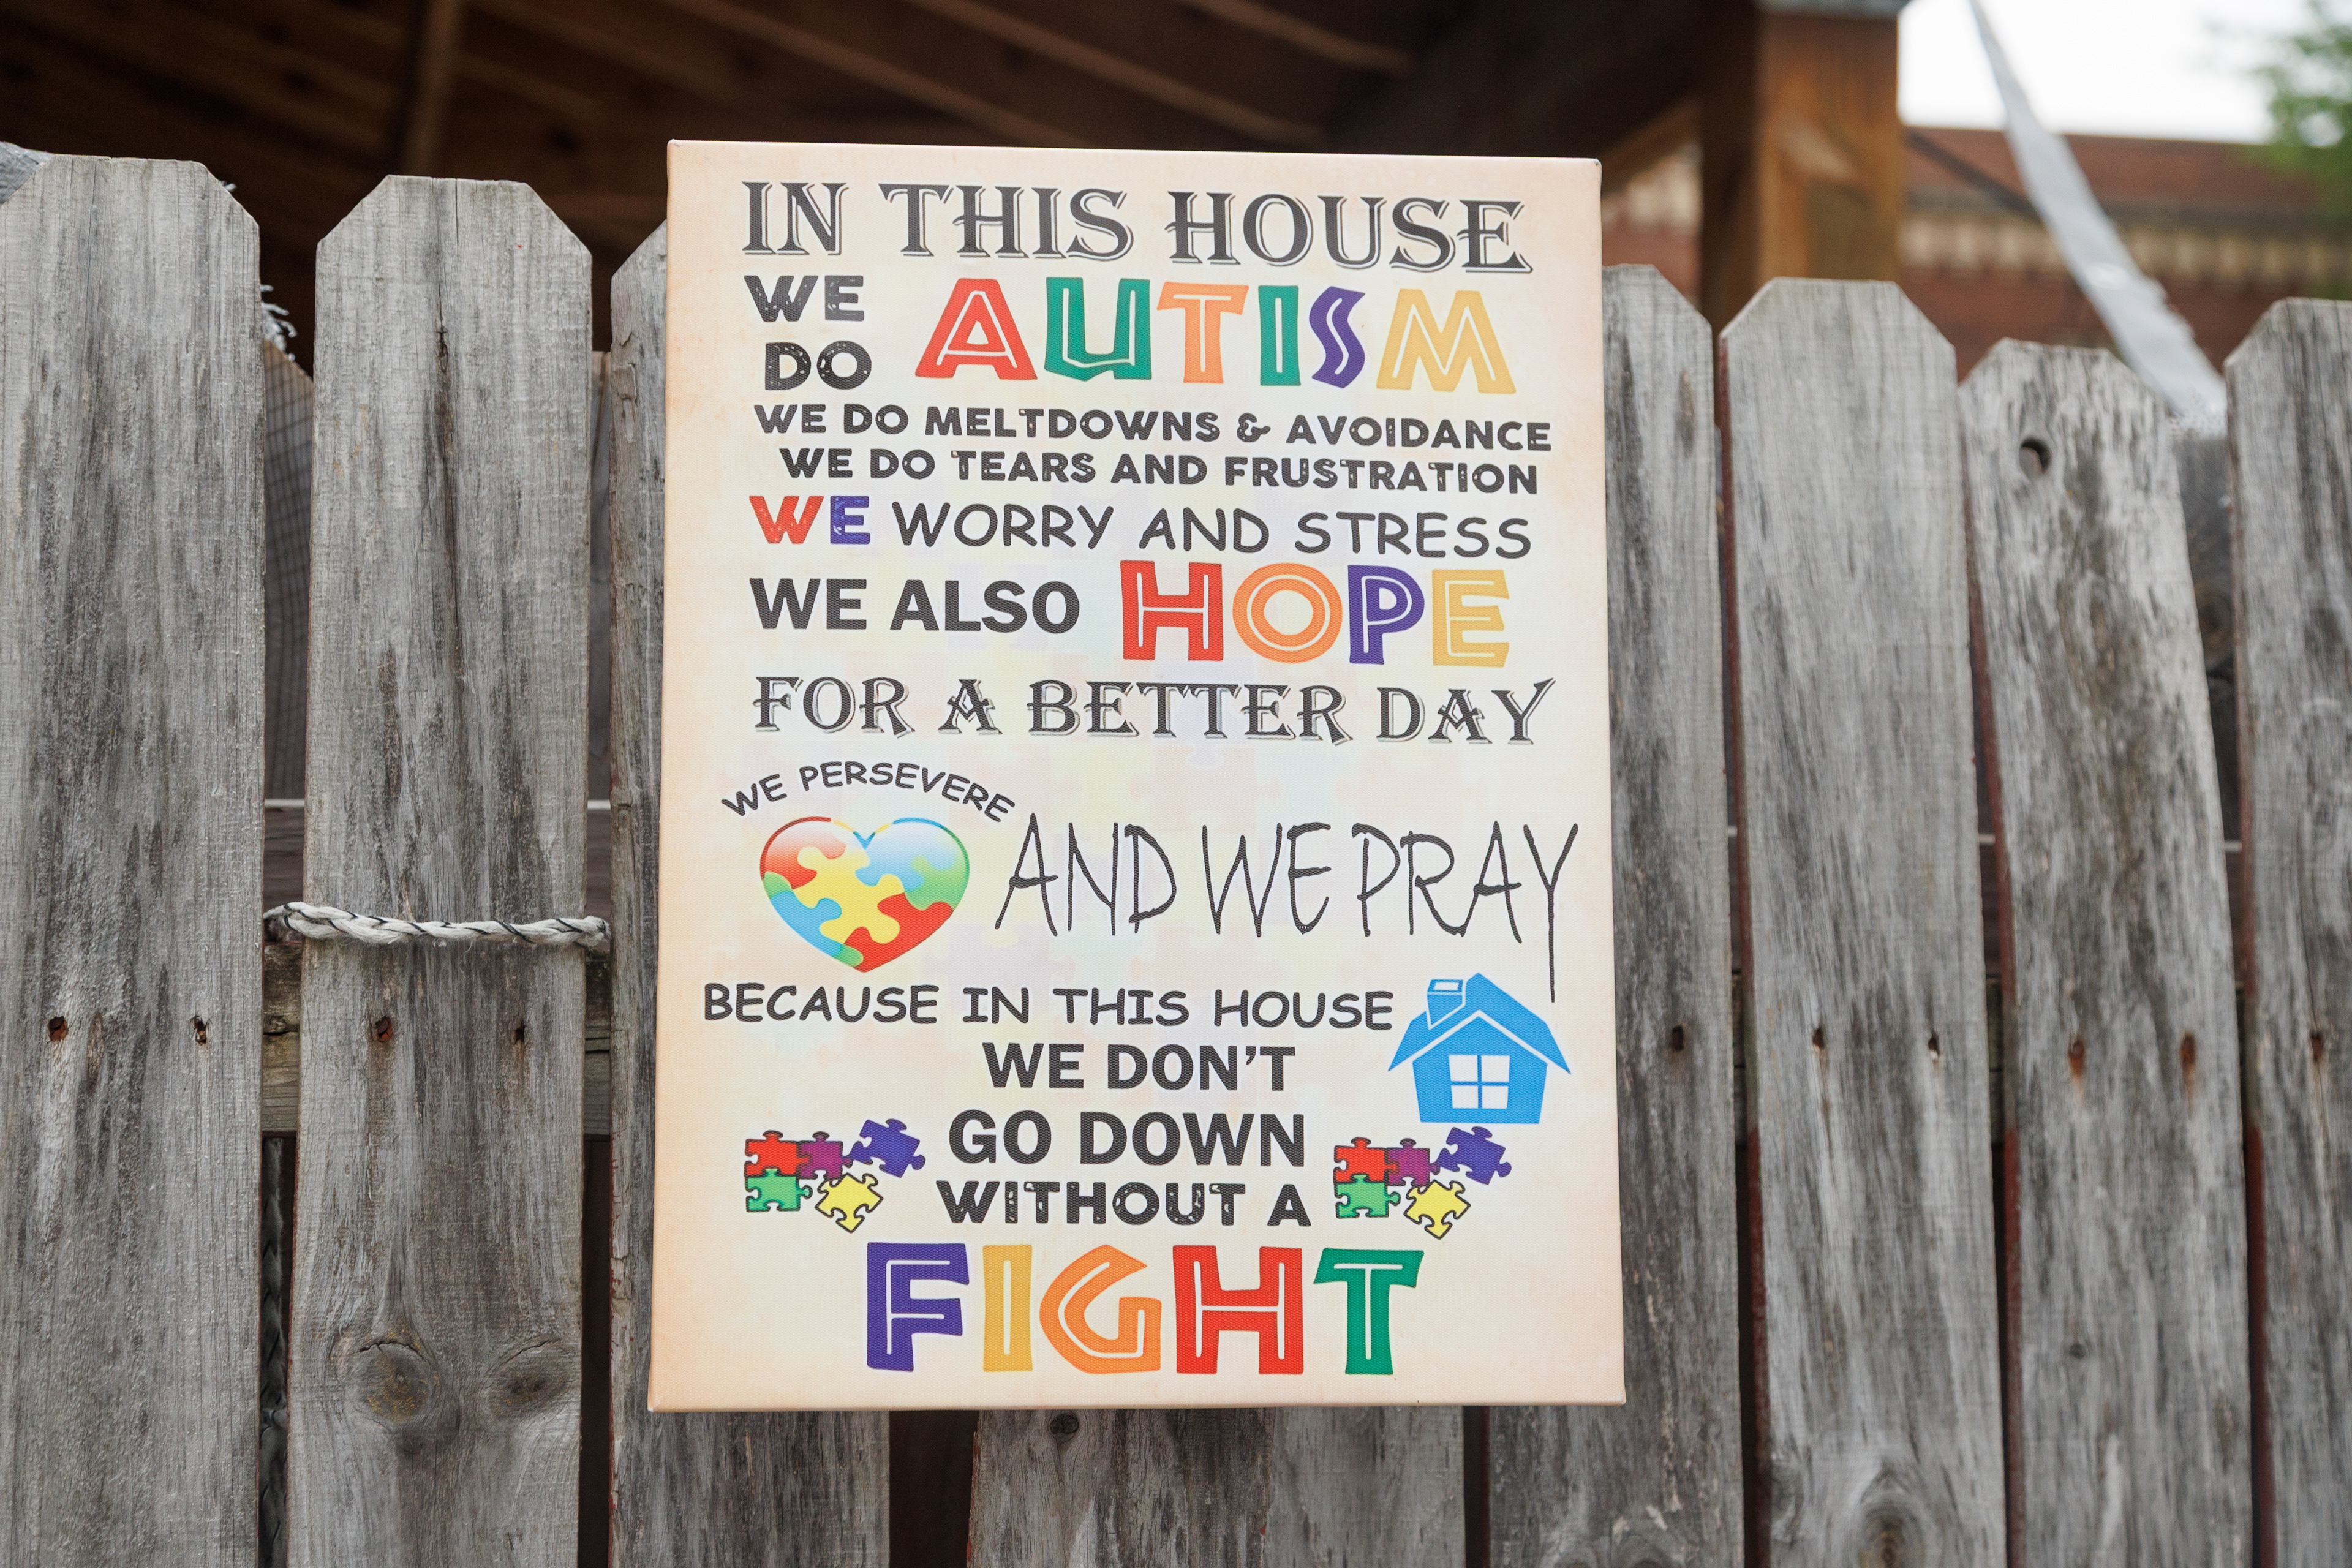 IN THIS HOUSE
WE DO AUTISM
WE DO MELTDOWNS & AVOIDANCE
WE DO TEARS AND FRUSTRATION
WE WORRY AND STRESS
WE ALSO HOPE
FOR A BETTER DAY
WE PERSEVERE
AND WE PRAY
BECAUSE IN THIS HOUSE
WE DON'T
GO DOWN
WITHOUT A
FIGHT